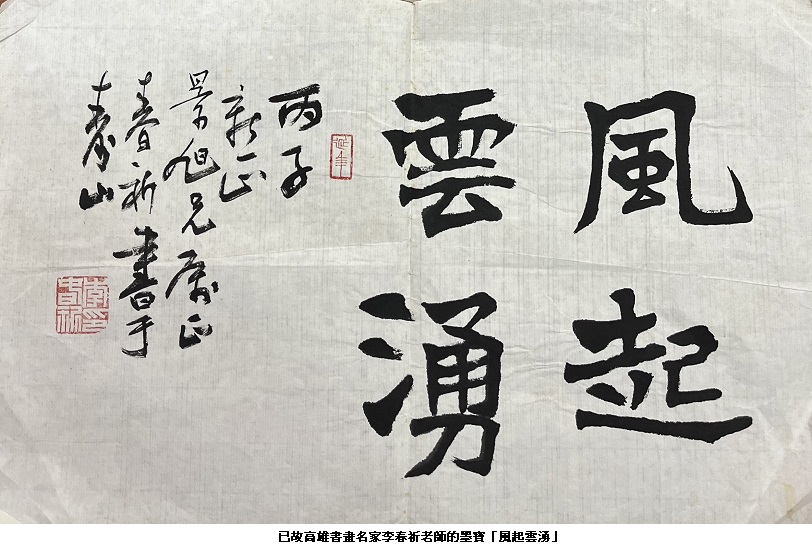 風起
雲湧
延年
丙子
新正
景旭兄屬正
春祈書于
壽山
李印
春祈
已故高雄書畫名家李春祈老師的墨寶「風起雲湧」